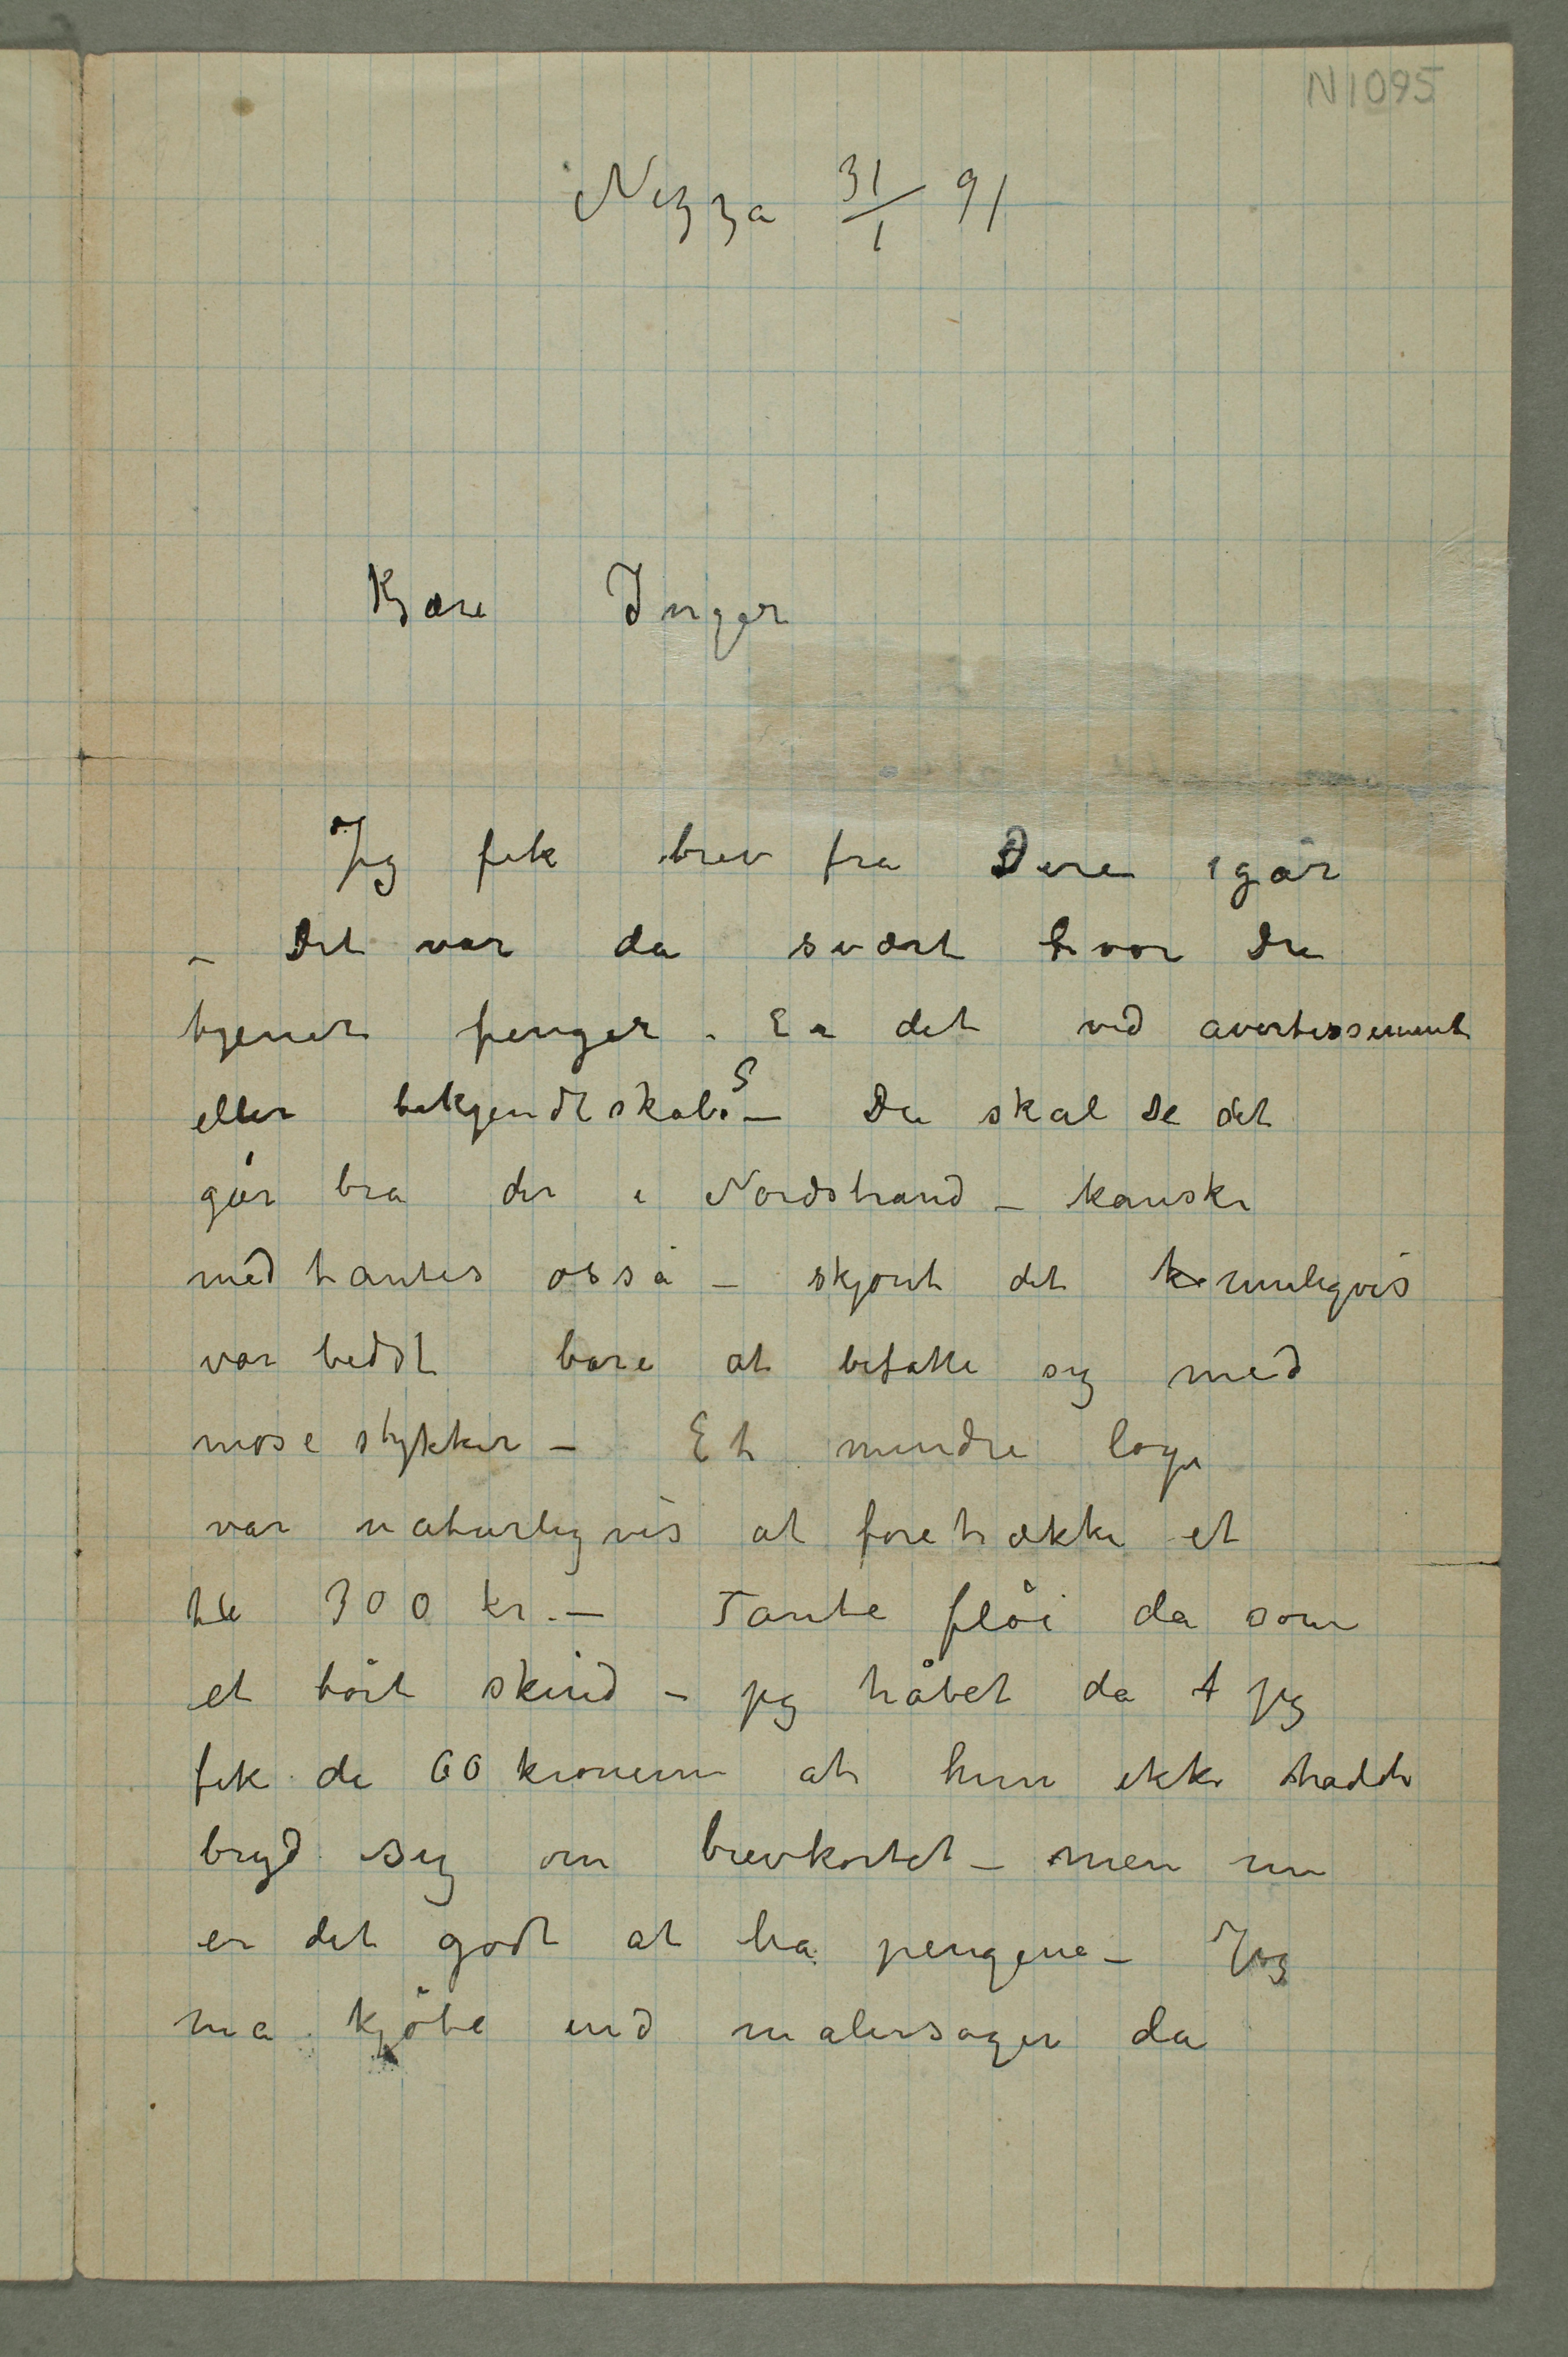 N 1095
Nizza 31/1 91
Kjære Inger
Jeg fik brev fra Dere igår
– Det var da svært hvor Du
tjener penger. Er det ved avertissement
eller bekjendtskabs? – Du skal se det
går bra der i Nordstrand – kanske
med tantes osså – skjønt det rimeligvis
var bedst bare at befatte sig med
mose stykker – Et mindre loge
var naturligvis at foretrække et
til 300 kr. – Tante fløi da som
et tørt skind – jeg håbet da jeg
fik de 60 kronerne at hun ikke hadde
bryd sig om brevkortet – men nu
er det godt at ha pengene – Jeg
må kjøbe ind malersager da